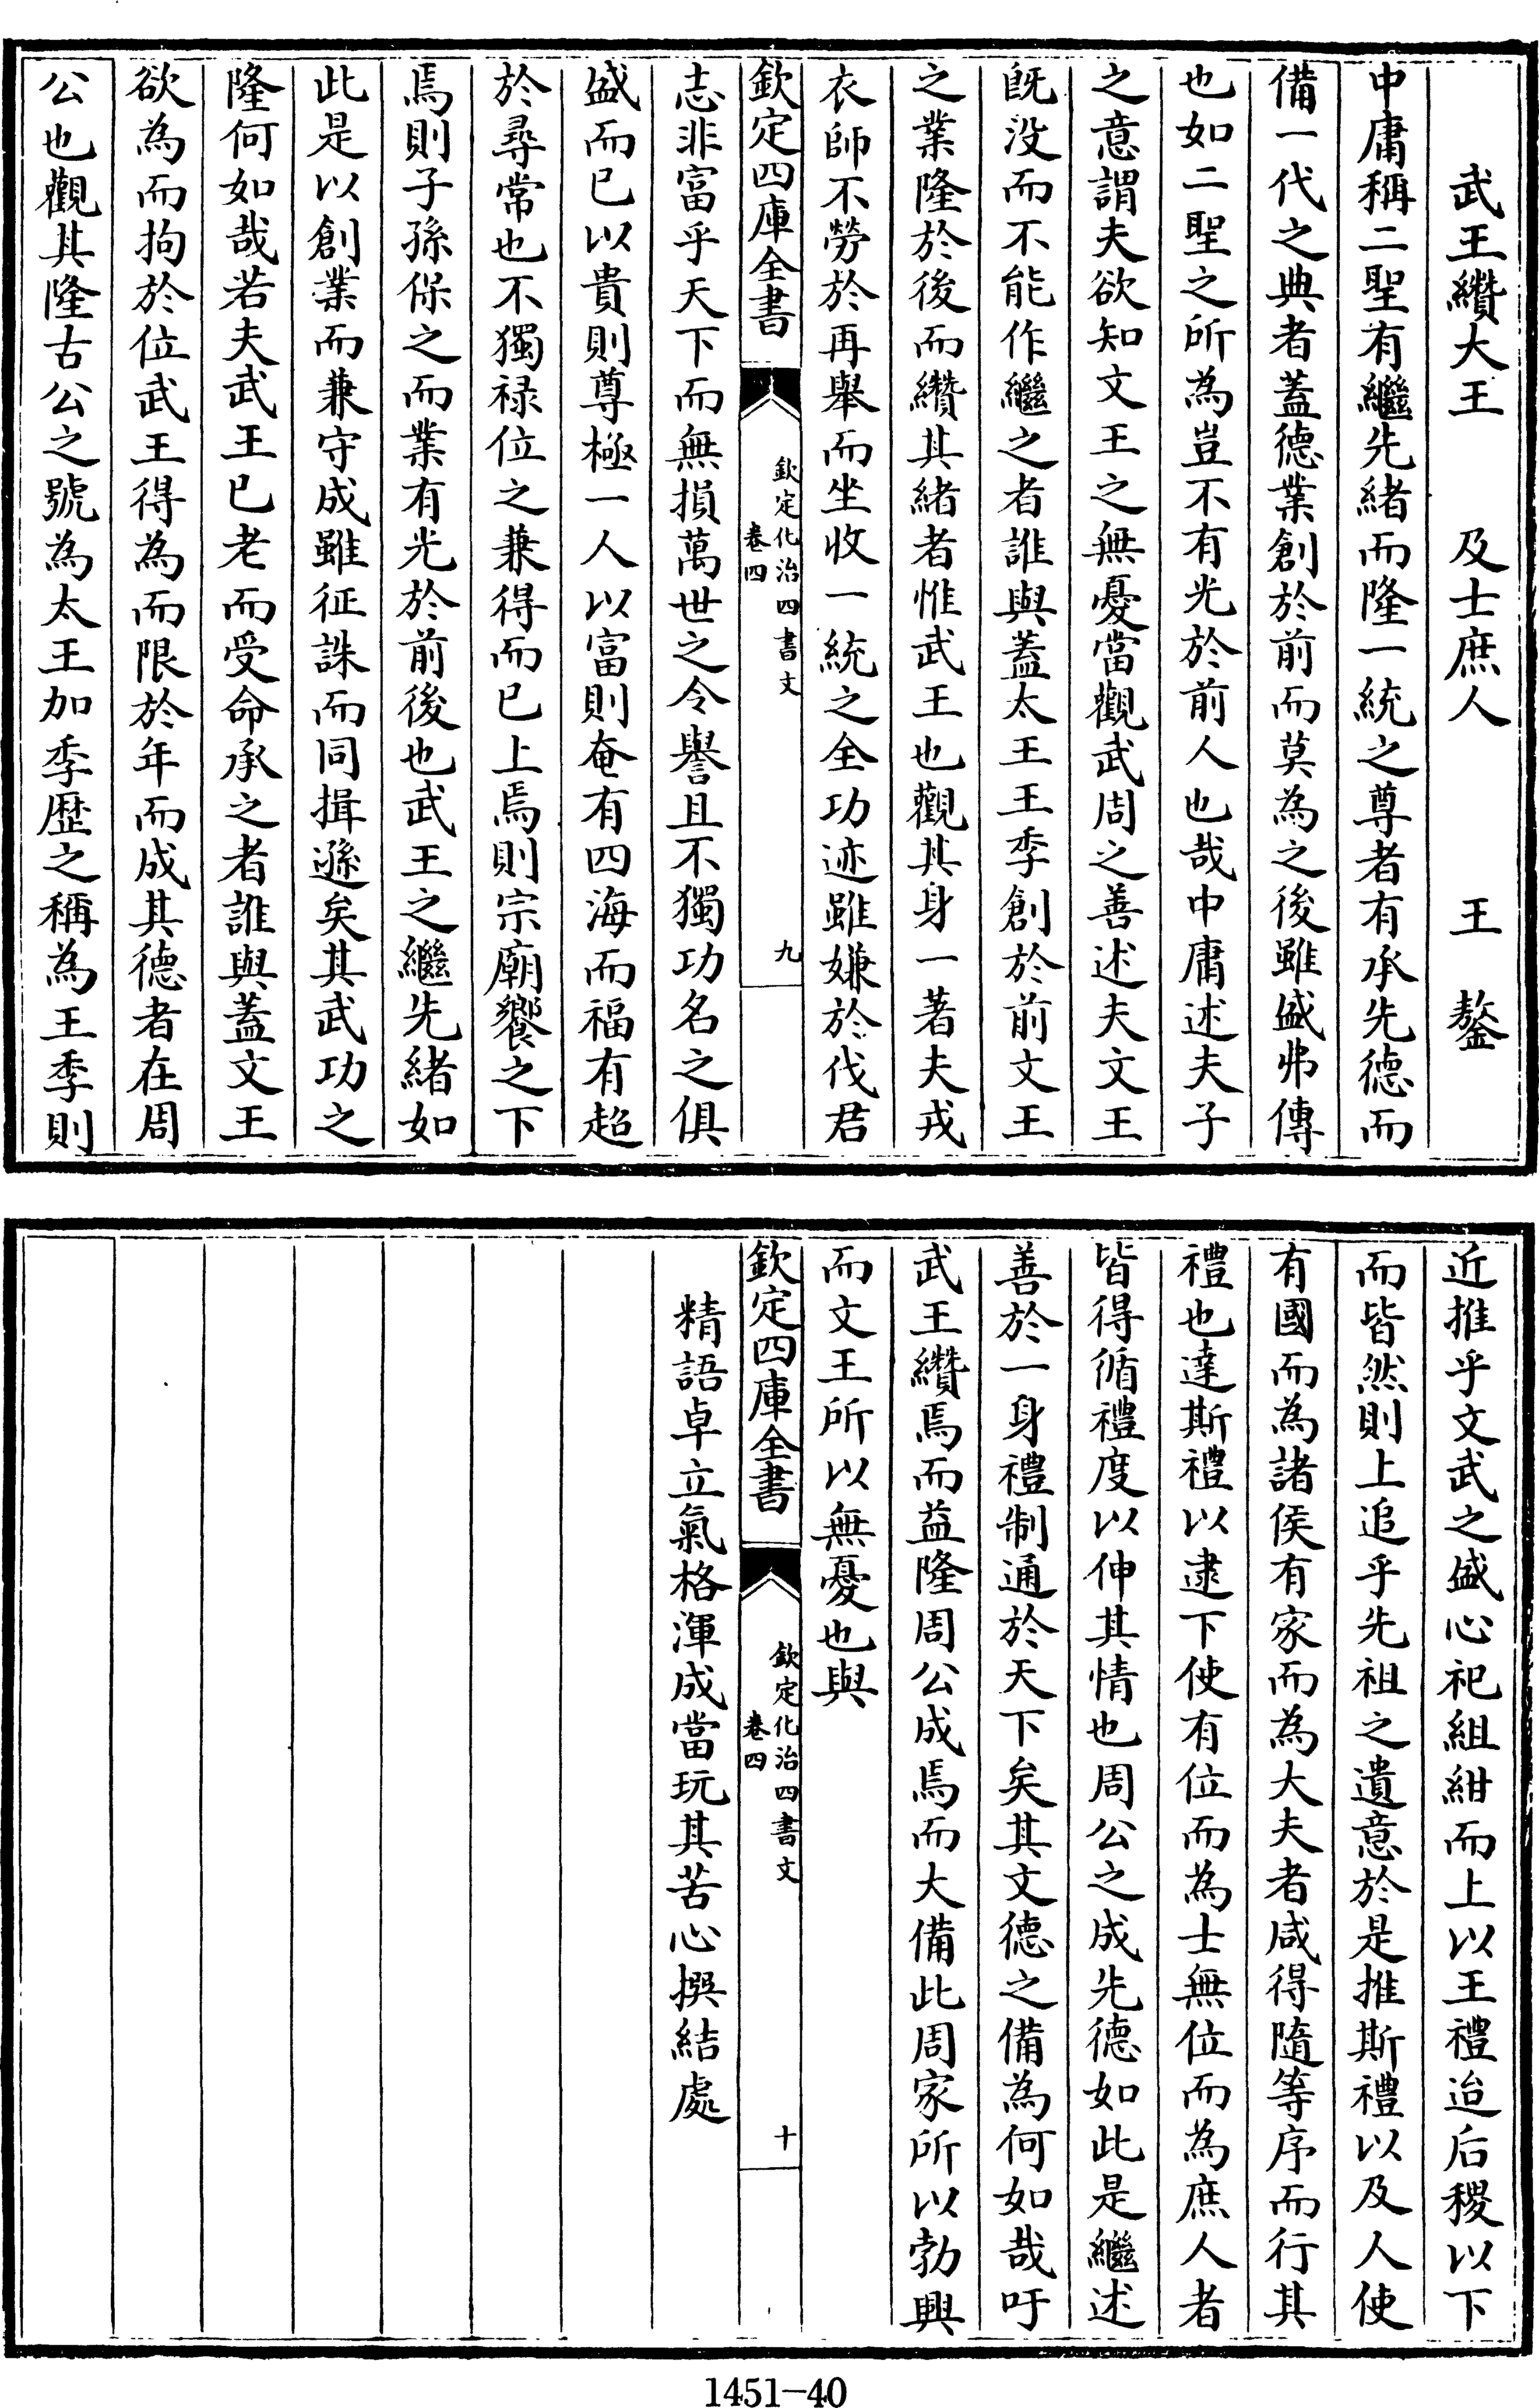 武王纘大王　及士庶人　王鏊
中庸稱二聖有繼先緒而隆一統之尊者有承先德而
備一代之典者蓋德業創於前而莫為之後雖盛弗傳
也如二聖之所為豈不有光於前人也哉中庸述夫子
之意謂夫欲知文王之無憂當觀武周之善述夫文王
旣没而不能作繼之者誰與蓋太王王季創於前文王
之業隆於後而纘其緒者惟武王也觀其身一著夫戎
衣師不勞於再舉而坐收一統之全功迹雖嫌於伐君
欽定四庫全書
欽定化治四書文
卷四
九
志非富乎天下而無損萬世之令譽且不獨功名之俱
盛而已以貴則尊極一人以富則奄有四海而福有超
於尋常也不獨禄位之兼得而已上焉則宗廟饗之下
焉則子孫保之而業有光於前後也武王之繼先緒如
此是以創業而兼守成雖征誅而同揖遜矣其武功之
隆何如哉若夫武王已老而受命承之者誰與蓋文王
欲為而拘於位武王得為而限於年而成其德者在周
公也觀其隆古公之號為太王加季歴之稱為王季則
近推乎文武之盛心祀組紺而上以王禮迨后稷以下
而皆然則上追乎先祖之遺意於是推斯禮以及人使
有國而為諸侯有家而為大夫者咸得隨等序而行其
禮也達斯禮以逮下使有位而為士無位而為庶人者
皆得循禮度以伸其情也周公之成先德如此是繼述
善於一身禮制通於天下矣其文德之備為何如哉吁
武王纘焉而益隆周公成焉而大備此周家所以勃興
而文王所以無憂也與
欽定四庫全書
欽定化治四書文
卷四
十
精語卓立氣格渾成當玩其苦心撰結處
1451-40